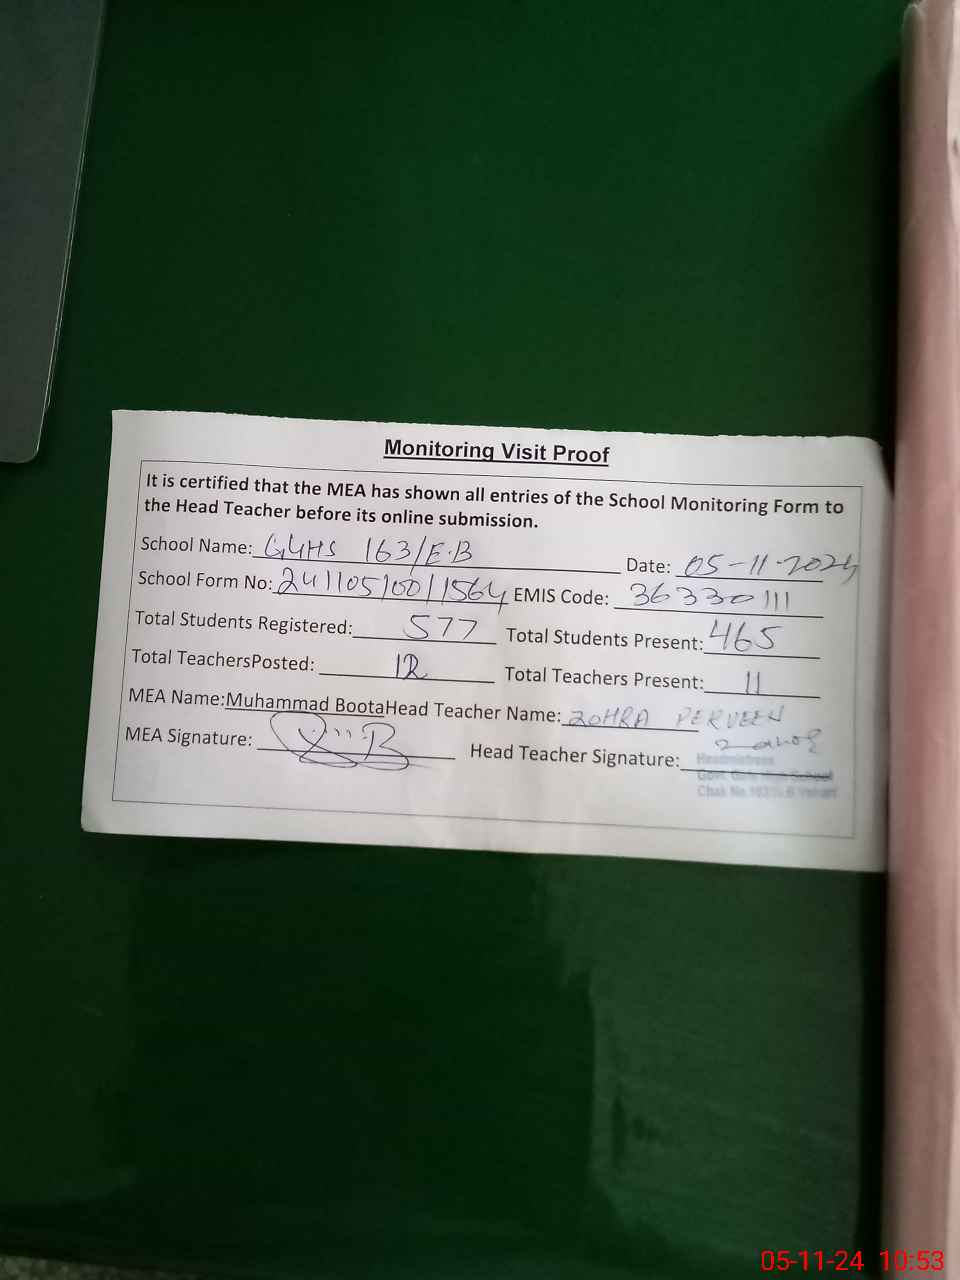 Monitoring Visit Proof
It is certified that the MEA has shown all entries of the School Monitoring Form to
the Head Teacher before its online submission.
School Name: GGHS 163/E.B Date: 05-11-2024
School Form No: 24110510011564 EMIS Code: 36330111
Total Students Registered: 577 Total Students Present: 465
Total TeachersPosted: 12 Total Teachers Present: 11
MEA Name:Muhammad BootaHead Teacher Name: ZOHRA PERVEEN
MEA Signature: Head Teacher Signature:
Headmistress
Govt. Girls High School
Chak No.163/E.B Vehari
05-11-24 10:53